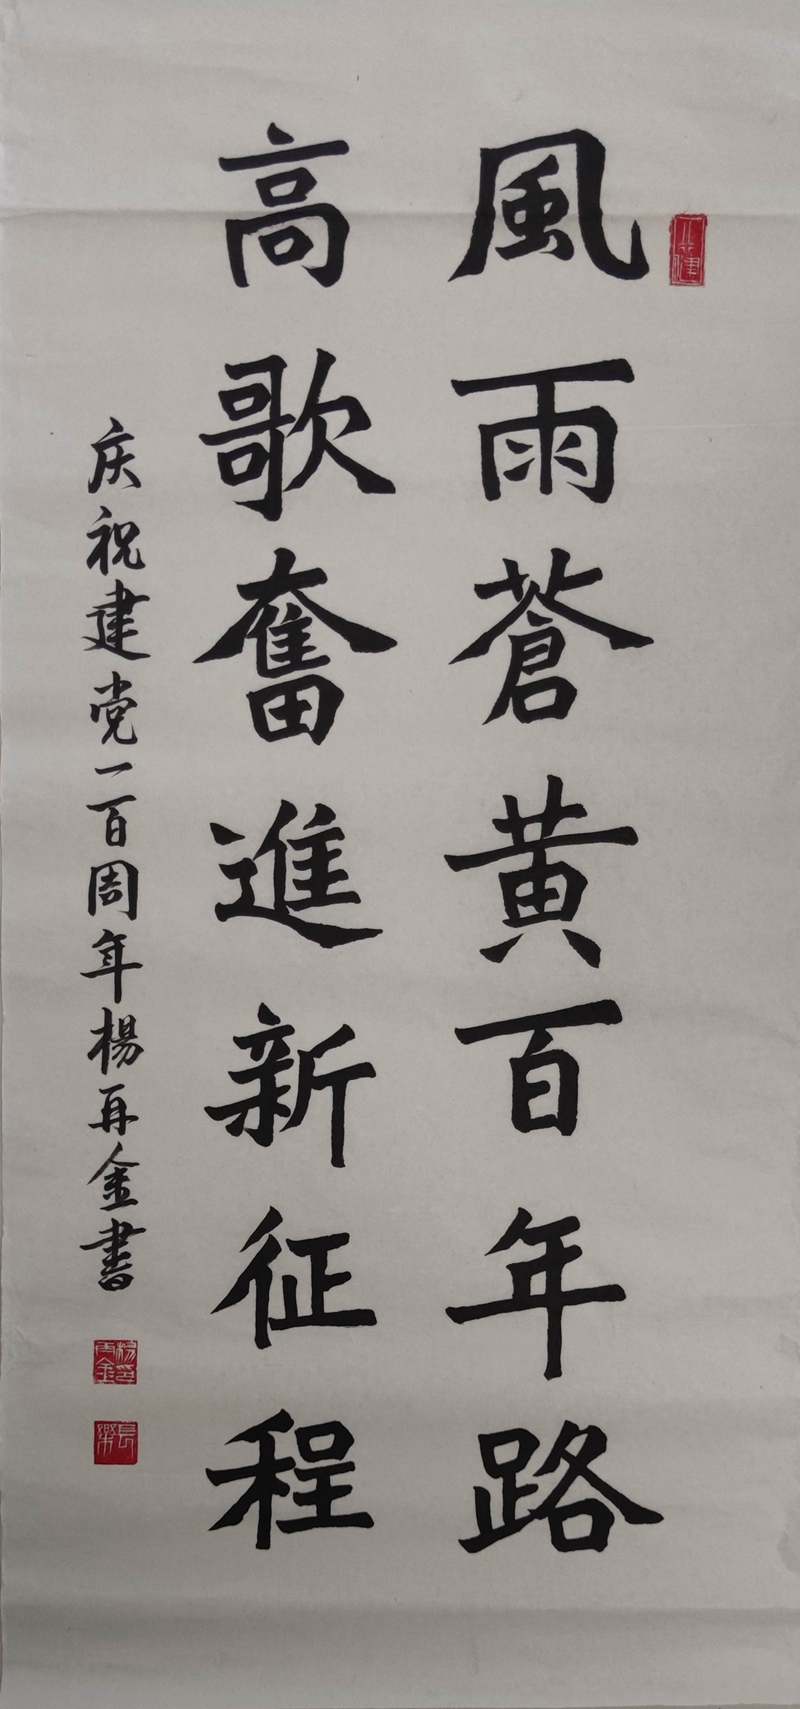 風雨蒼黄百年路
高歌奮進新征程
庆祝建党一百周年楊再金書
楊再金印
長樂